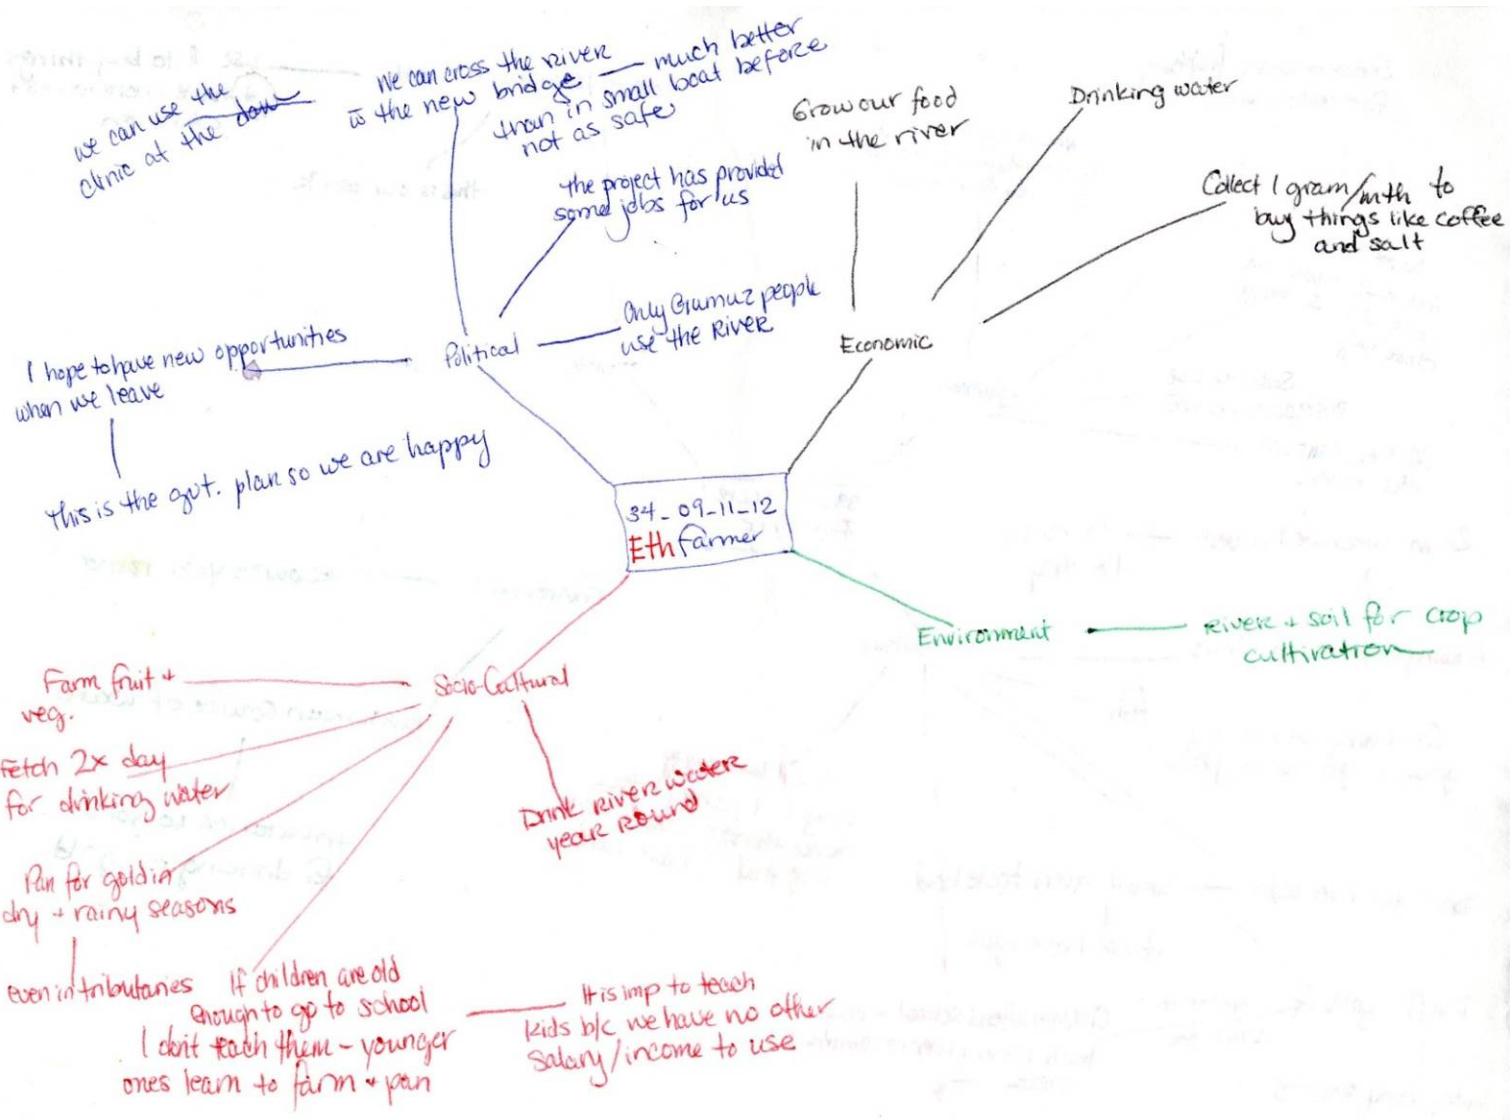 we can use the
clinic at the dam
we can cross the river
in the new bridge — much better
than in small boat before
not as safe
the project has provided
some jobs for us
Only Gumuz people
use the River
Political
I hope to have new opportunities
when we leave
this is the gvt. plan so we are happy
Grow our food
in the river
Drinking water
Collect 1 gram/mth to
buy things like coffee
and salt
Economic
34_09_11_12
Eth farmer
Environment
River + soil for crop
cultivation
Socio-Cultural
Farm fruit +
veg.
Fetch 2x day
for drinking water
Pan for gold in
dry + rainy seasons
even in tributaries
If children are old
enough to go to school
I don't teach them - younger
ones learn to farm + pan
It is imp to teach
kids b/c we have no other
salary/income to use
Drink river water
year round